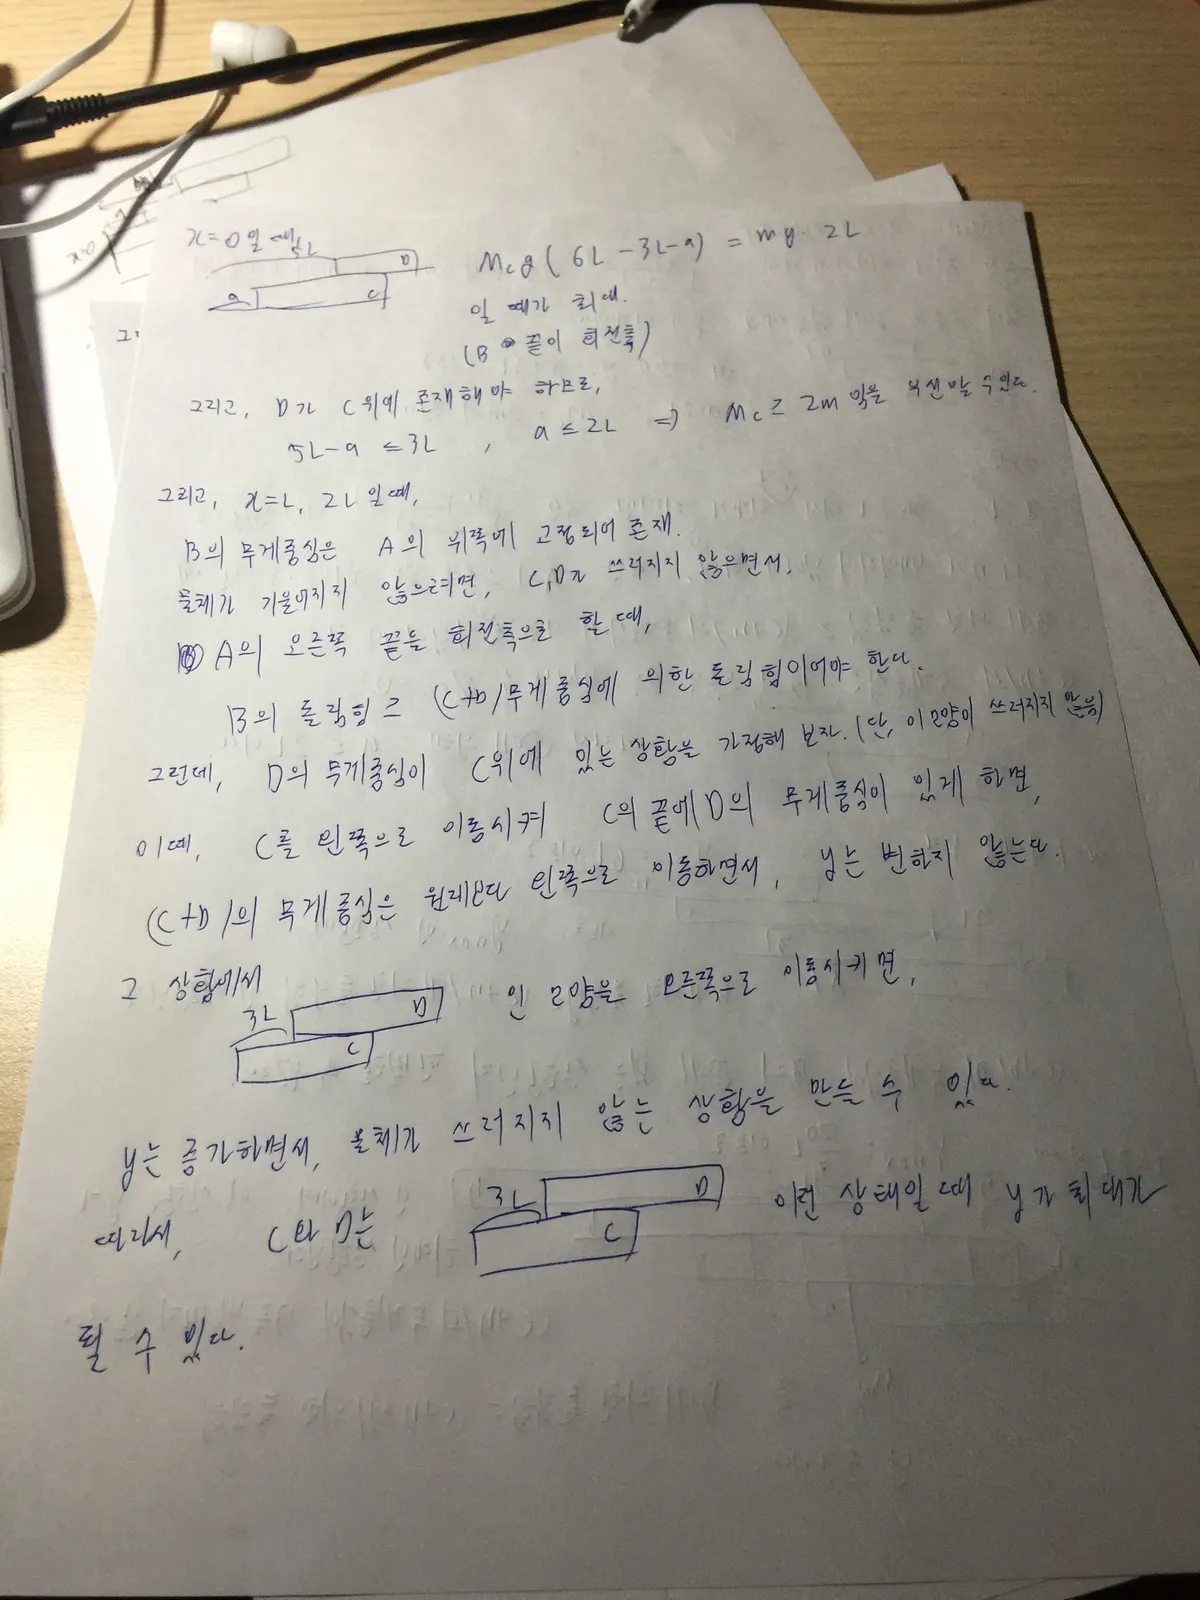 x=0일 때
5L
D
a
C
Mcg(6L-3L-a) = mg·2L
일 때가 최대.
(B 끝이 회전축)
그리고, D가 C위에 존재해야 하므로,
5L-a ≤3L , a≤2L ⇒ Mc≥2m 임을 우선 알 수 있다.
그리고, x=L, 2L일때,
B의 무게중심은 A의 위쪽에 고정되어 존재.
물체가 기울어지지 않으려면, C,D가 쓰러지지 않으면서,
A의 오른쪽 끝을 회전축으로 할 때,
B의 돌림힘 ≥ (C+D)무게중심에 의한 돌림힘이어야 한다.
그런데, D의 무게중심이 C위에 있는 상황을 가정해 보자. (단, 이 모양이 쓰러지지 않음)
이때, C를 왼쪽으로 이동시켜 C의 끝에 D의 무게중심이 있게 하면,
(C+D)의 무게중심은 원래보다 왼쪽으로 이동하면서, y는 변하지 않는다.
그 상황에서
3L
D
C
인 모양을 오른쪽으로 이동시키면,
y는 증가하면서, 물체가 쓰러지지 않는 상황을 만들 수 있다.
따라서, C와 D는
3L
D
C
이런 상태일 때 y가 최대가
될 수 있다.
x=0